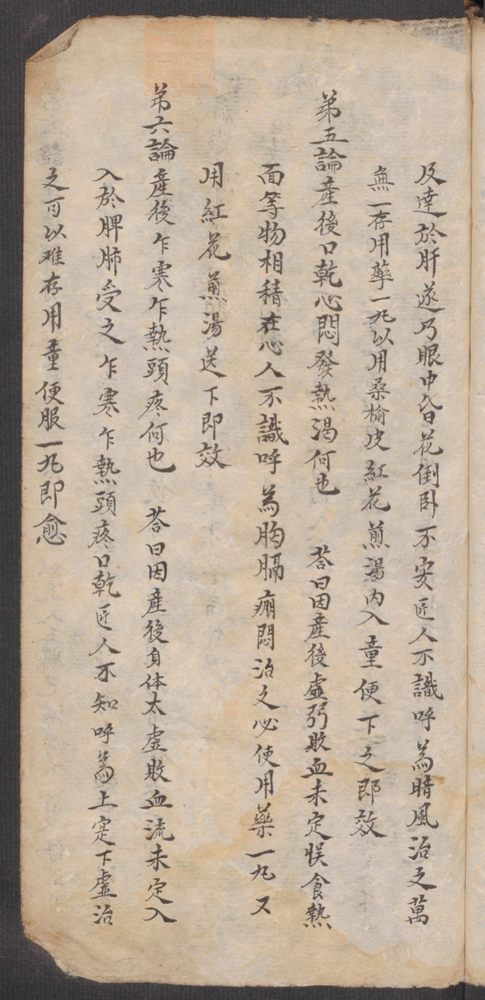 及達於肝遂乃眼中昏花倒臥不安匠人不識呼為暗風治之萬
無一存用藥一丸以用桑榆皮紅花煎湯內入童便下之即效
第五論產後口乾心悶發熱渴何也 荅曰因產後虛弱敗血未定悮食熱
面等物相積在心人不識呼為胸膈痈悶治之必使用藥一丸又
用紅花煎湯送下即效
第六論產後乍寒乍熱頭疼何也 荅曰因產後身体太虛敗血流未定入
入於脾肺受之乍寒乍熱頭疼口乾匠人不知呼為上寔下虛治
之可以难存用童便服一丸即愈